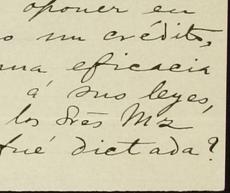 oponer en
o nu crédito,
una eficacia
á sus leyes,
los Srēs Mz
fué dictada?